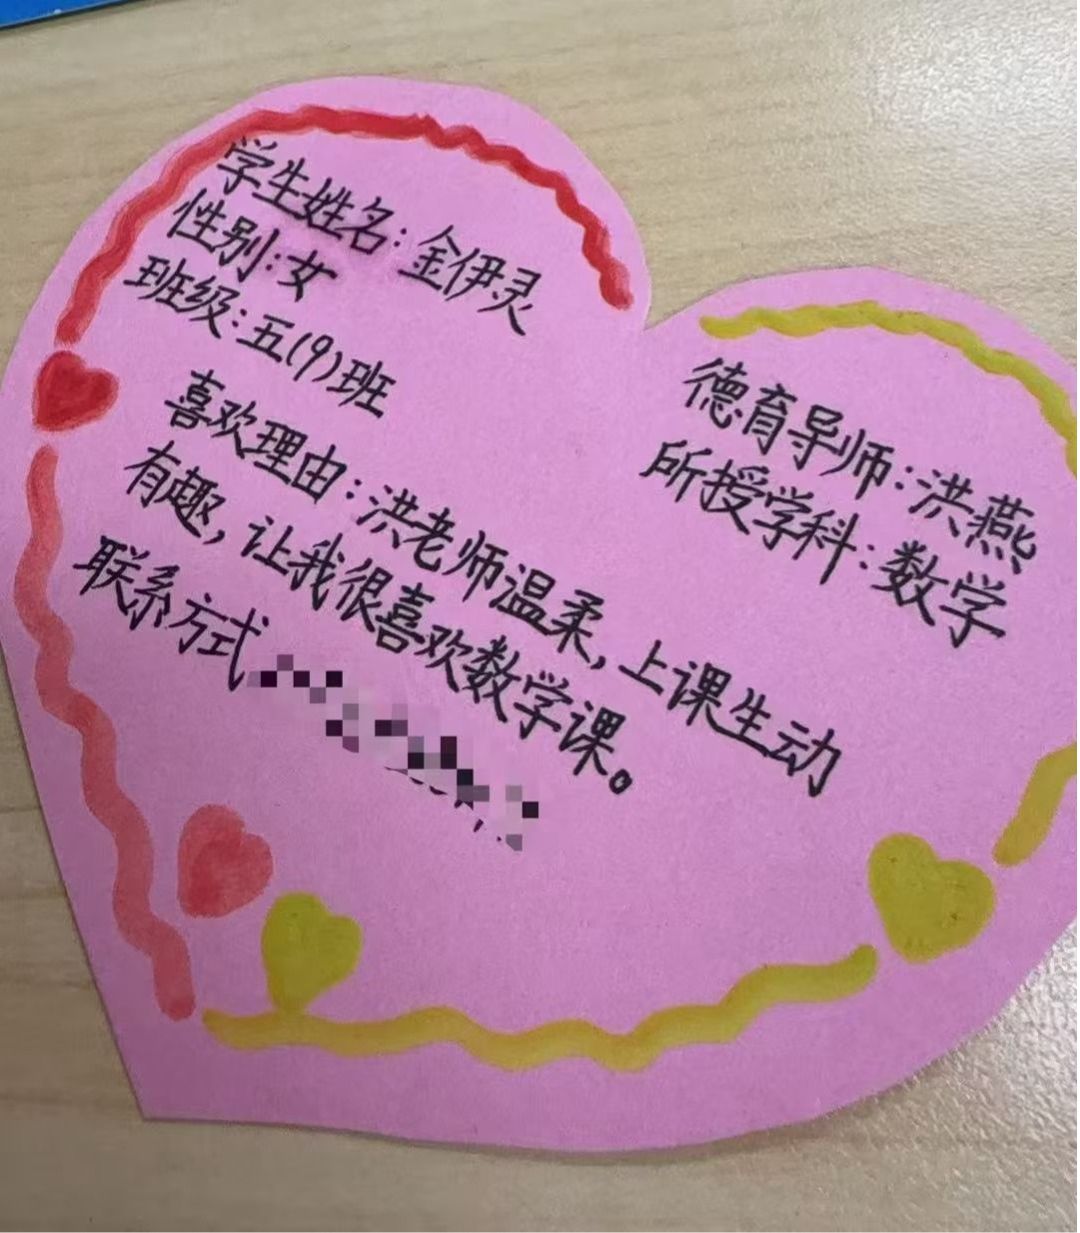 学生姓名：金伊灵
性别：女
班级：五(9)班
德育导师：洪燕
所授学科：数学
喜欢理由：洪老师温柔，上课生动
有趣，让我很喜欢数学课。
联系方式